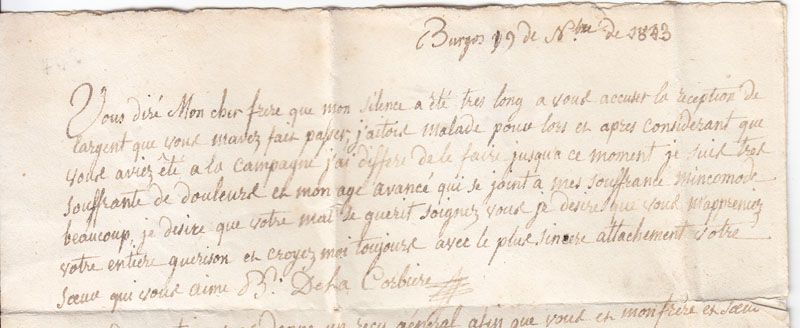 Burgos 19 de Nbre de 1843
Vous diré Mon cher frere que mon silence a été tres long a vous accuser la reception de
l'argent que vous mavez fait passer, j'aitois malade pour lors et apres considerant que
vous aviez été a la campagne j'ai differé de le faire jusqu'a ce moment je suis tres
souffrante de douleurs et mon age avancé qui se joint a mes souffrance m'incomode
beaucoup, je desire que votre mal se guerit soignez vous je desire que vous m'appreniez
votre entiere guerison et croyez moi toujours avec le plus sincere attachement votre
sœur qui vous aime De la Corbiere
un reçu général afin que vous et mon frere et sœur